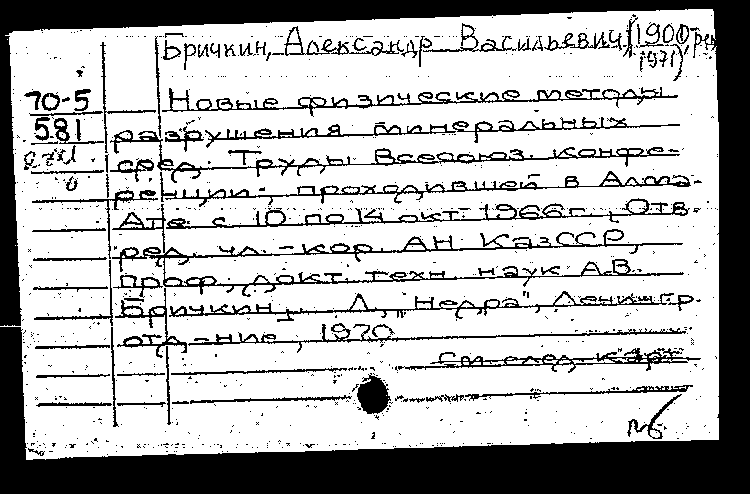 Бричкин, Александр Васильевич (1900-1971), ред.
70-5
581
Новые физические методы
разрушения минеральных
сред. Труды Всесоюз. конфе-
ренции, проходившей в Алма-
Ате с 10 по 14 окт. 1966 г., Отв.
ред. чл.-кор. АН КазССР,
проф., докт. техн. наук А.В.
Бричкин. Л., "Недра", Ленингр.
отд-ние, 1970.
см. след. карт.